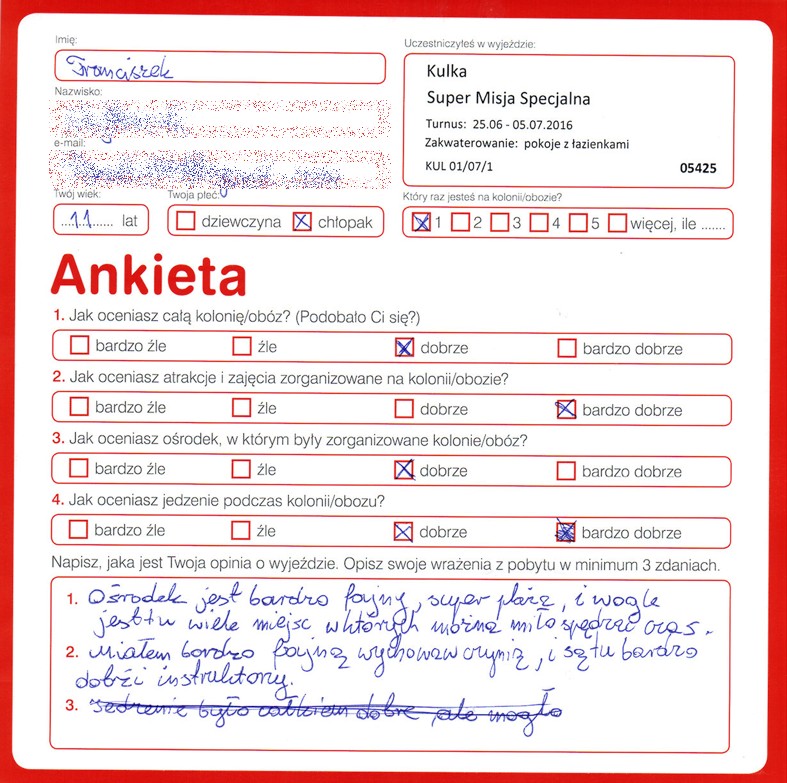 Imię:
Franciszek
Nazwisko:
e-mail:
Twój wiek:
11 lat
Twoja płeć:
dziewczyna chłopak
Uczestniczyłeś w wyjeździe:
Kulka
Super Misja Specjalna
Turnus: 25.06 - 05.07.2016
Zakwaterowanie: pokoje z łazienkami
KUL 01/07/1 05425
Który raz jesteś na kolonii/obozie?
1 2 3 4 5 więcej, ile .......
Ankieta
1. Jak oceniasz całą kolonię/obóz? (Podobało Ci się?)
bardzo źle źle dobrze bardzo dobrze
2. Jak oceniasz atrakcje i zajęcia zorganizowane na kolonii/obozie?
bardzo źle źle dobrze bardzo dobrze
3. Jak oceniasz ośrodek, w którym były zorganizowane kolonie/obóz?
bardzo źle źle dobrze bardzo dobrze
4. Jak oceniasz jedzenie podczas kolonii/obozu?
bardzo źle źle dobrze bardzo dobrze
Napisz, jaka jest Twoja opinia o wyjeździe. Opisz swoje wrażenia z pobytu w minimum 3 zdaniach.
1. Ośrodek jest bardzo fajny, super plaża, i wogle
jest tu wiele miejsc w których można miło spędzać czas.
2. Miałem bardzo fajną wychowawczynią, i są tu bardzo
dobrzi instruktorzy.
3. Jedzenie było całkiem dobre, ale mogło